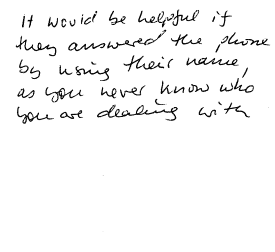 It would be helpful if
they answered the phone
by using their name,
as you never know who
you are dealing with